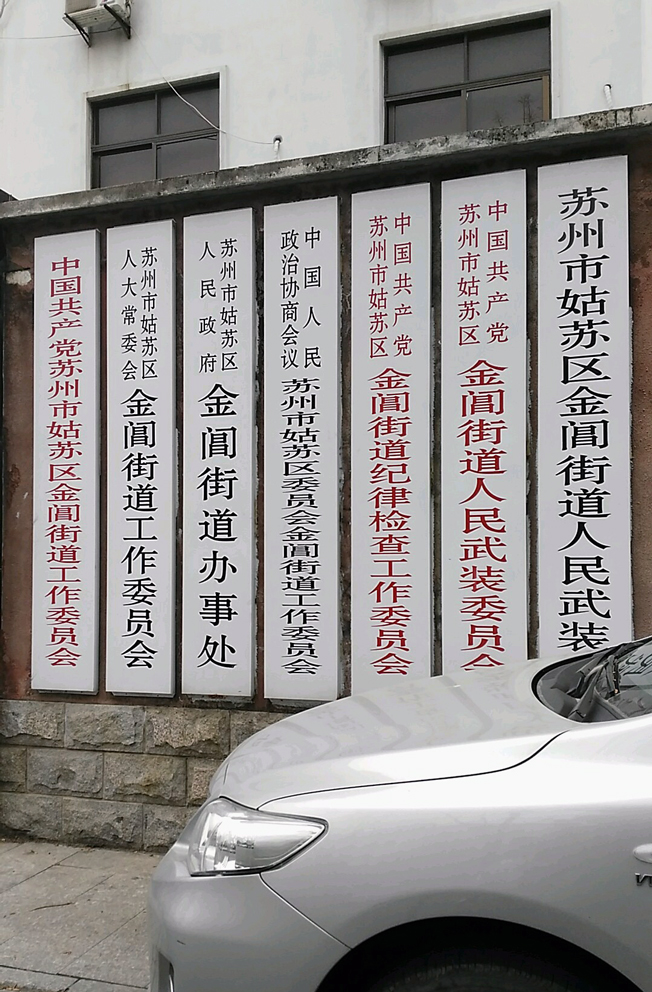 中国共产党苏州市姑苏区金阊街道工作委员会
苏州市姑苏区
人大常委会
金阊街道工作委员会
苏州市姑苏区
人民政府
金阊街道办事处
中国人民
政治协商会议
苏州市姑苏区委员会金阊街道工作委员会
中国共产党
苏州市姑苏区
金阊街道纪律检查工作委员会
中国共产党
苏州市姑苏区
金阊街道人民武装委员会
苏州市姑苏区金阊街道人民武装